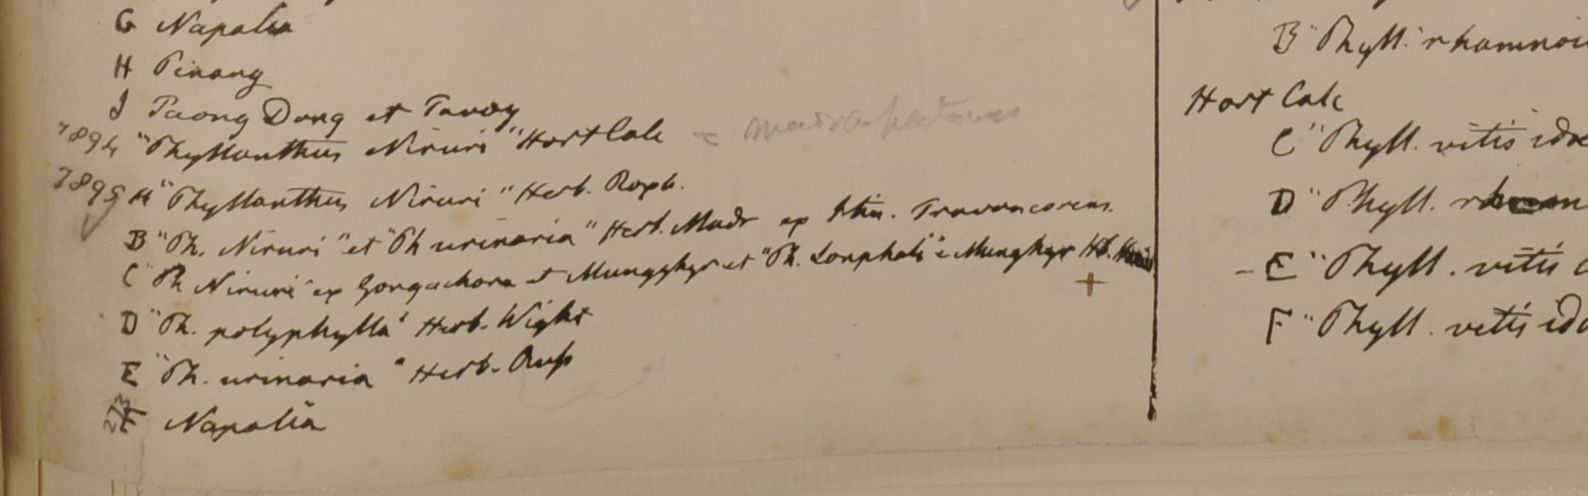 G Napalia
H Pinang
I Taong Dong et Tavoy
7894 "Phyllanthus Niruri" Hort Calc = maderaspatensis
7895 A "Phyllanthus Niruri" Herb. Roxb.
B "Ph. Niruri" et "Ph urinaria" Herb. Madr ex Itin. Travancorens.
C "Ph Niruri" ex Gongachora et Mungghyr et "Ph. Lonphali" e Munghyr Hb.
D "Ph. polyphylla" Herb. Wight
E "Ph. urinaria" Herb. Russ
F Napalia
B "Phyll. rhamnoi
Hort Calc
C "Phyll. vitis idae
D "Phyll.
E "Phyll. vitis
F "Phyll. vitis ida